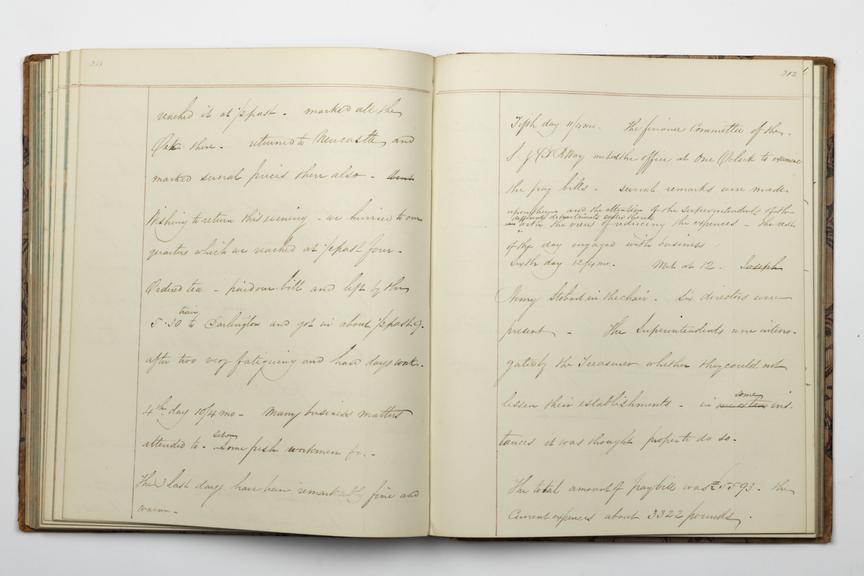 211
reached it at ½ past - marked all the
Oak there - returned to Newcastle, and
marked several pieces there also -
Wishing to return this evening - we hurried to our
quarters which we reached at ½ past four -
Ordered tea - paid our bill and left by the
train
5.30 to Darlington and got in about ½ past 9.
after two very fatiguing and hard days work.
4th day 10/4 mo - Many business matters
attended to - Some fresh workmen &c -
The 3 last days have been remarkably fine and
warm -
212
Fifth day 11/4 mo. The finance Committee of the
S. & D. R Way met at the office at One O'Clock to examine
the pay bills - Several remarks were made
upon them and the attention of the Superintendents of the
different departments
with the view of reducing the expences - the rest
of the day engaged with business
Sixth day 12/4 mo. Met at 12 - Joseph
Henry Stobart in the chair. Six directors were
present - The Superintendents were interro-
gated by the Treasurer whether they could not
some
lessen their establishments - in ins-
tances it was thought proper to do so.
The total amount of pay bills was £5593 - the
Current expences about 3322 pounds.